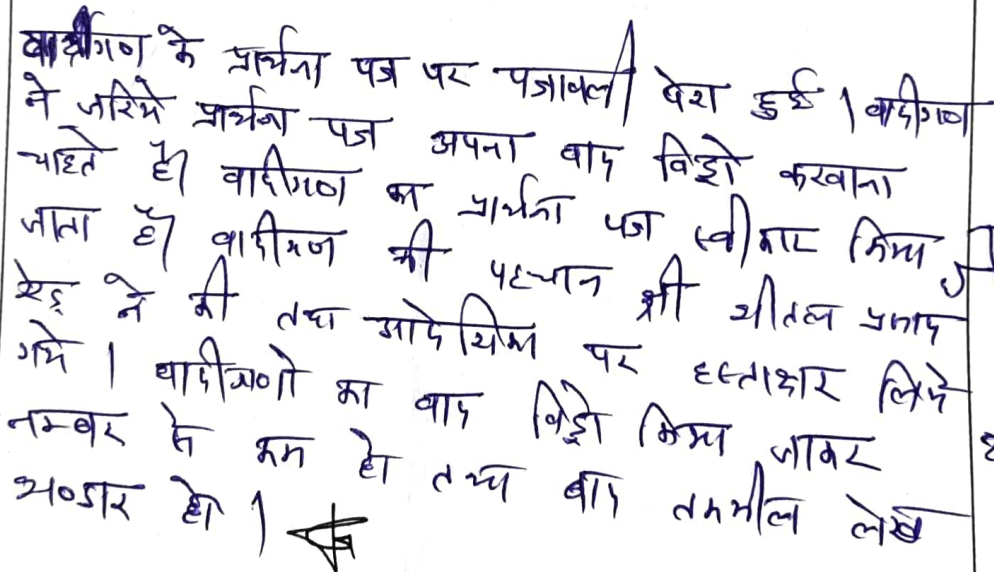 वादीगण के प्रार्थना पत्र पर पत्रावली पेश हुई । वादीगण
ने जरिये प्रार्थना पत्र अपना वाद विड्रो करवाना
चाहते है। वादीगण का प्रार्थना पत्र स्वीकार किया
जाता है। वादीगण की पहचान श्री शीतल प्रसाद
ने की तथा आदेशिका पर हस्ताक्षर लिये
गये । वादीगणो का वाद विड्रो किया जाकर
नम्बर से कम हो तथा बाद तकमील लेख
भण्डार हो ।